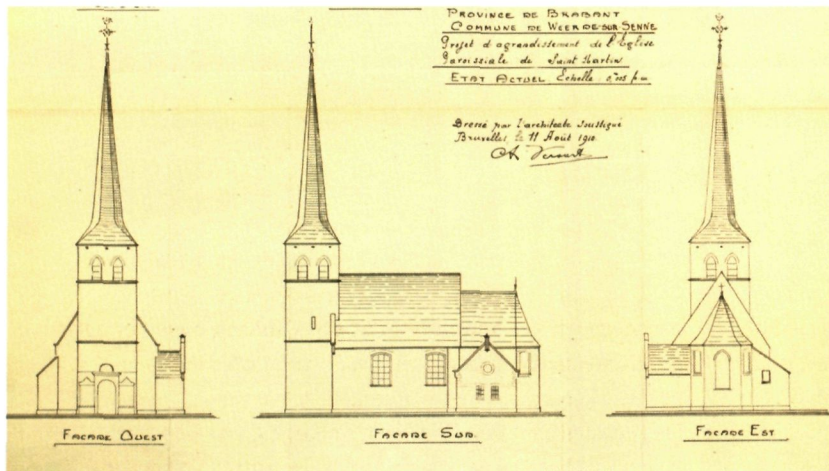 PROVINCE DE BRABANT
COMMUNE DE WEERDE-SUR-SENNE
Projet d'agrandissement de l'Eglise
Paroissiale de Saint Martin
ETAT ACTUEL. Echelle
Dressé par l'architecte soussigné
Bruxelles, le 11 Août 1910
FACADE OUEST
FACADE SUD.
FACADE EST